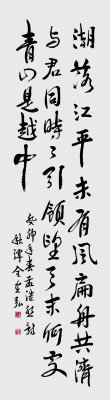 潮落江平未有風扁舟共濟
与君同時々引領望天末何處
青山是越中
癸卯孟浩然詩